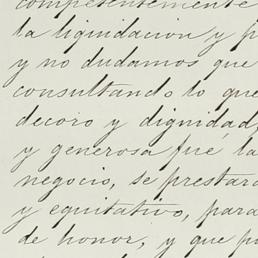 competentemente
la liquidacion y p
y no dudamos que
consultando lo que
decoro y dignidad,
y generosa fué la
negocio, se prestara
y equitativo, para
de honor, y que p